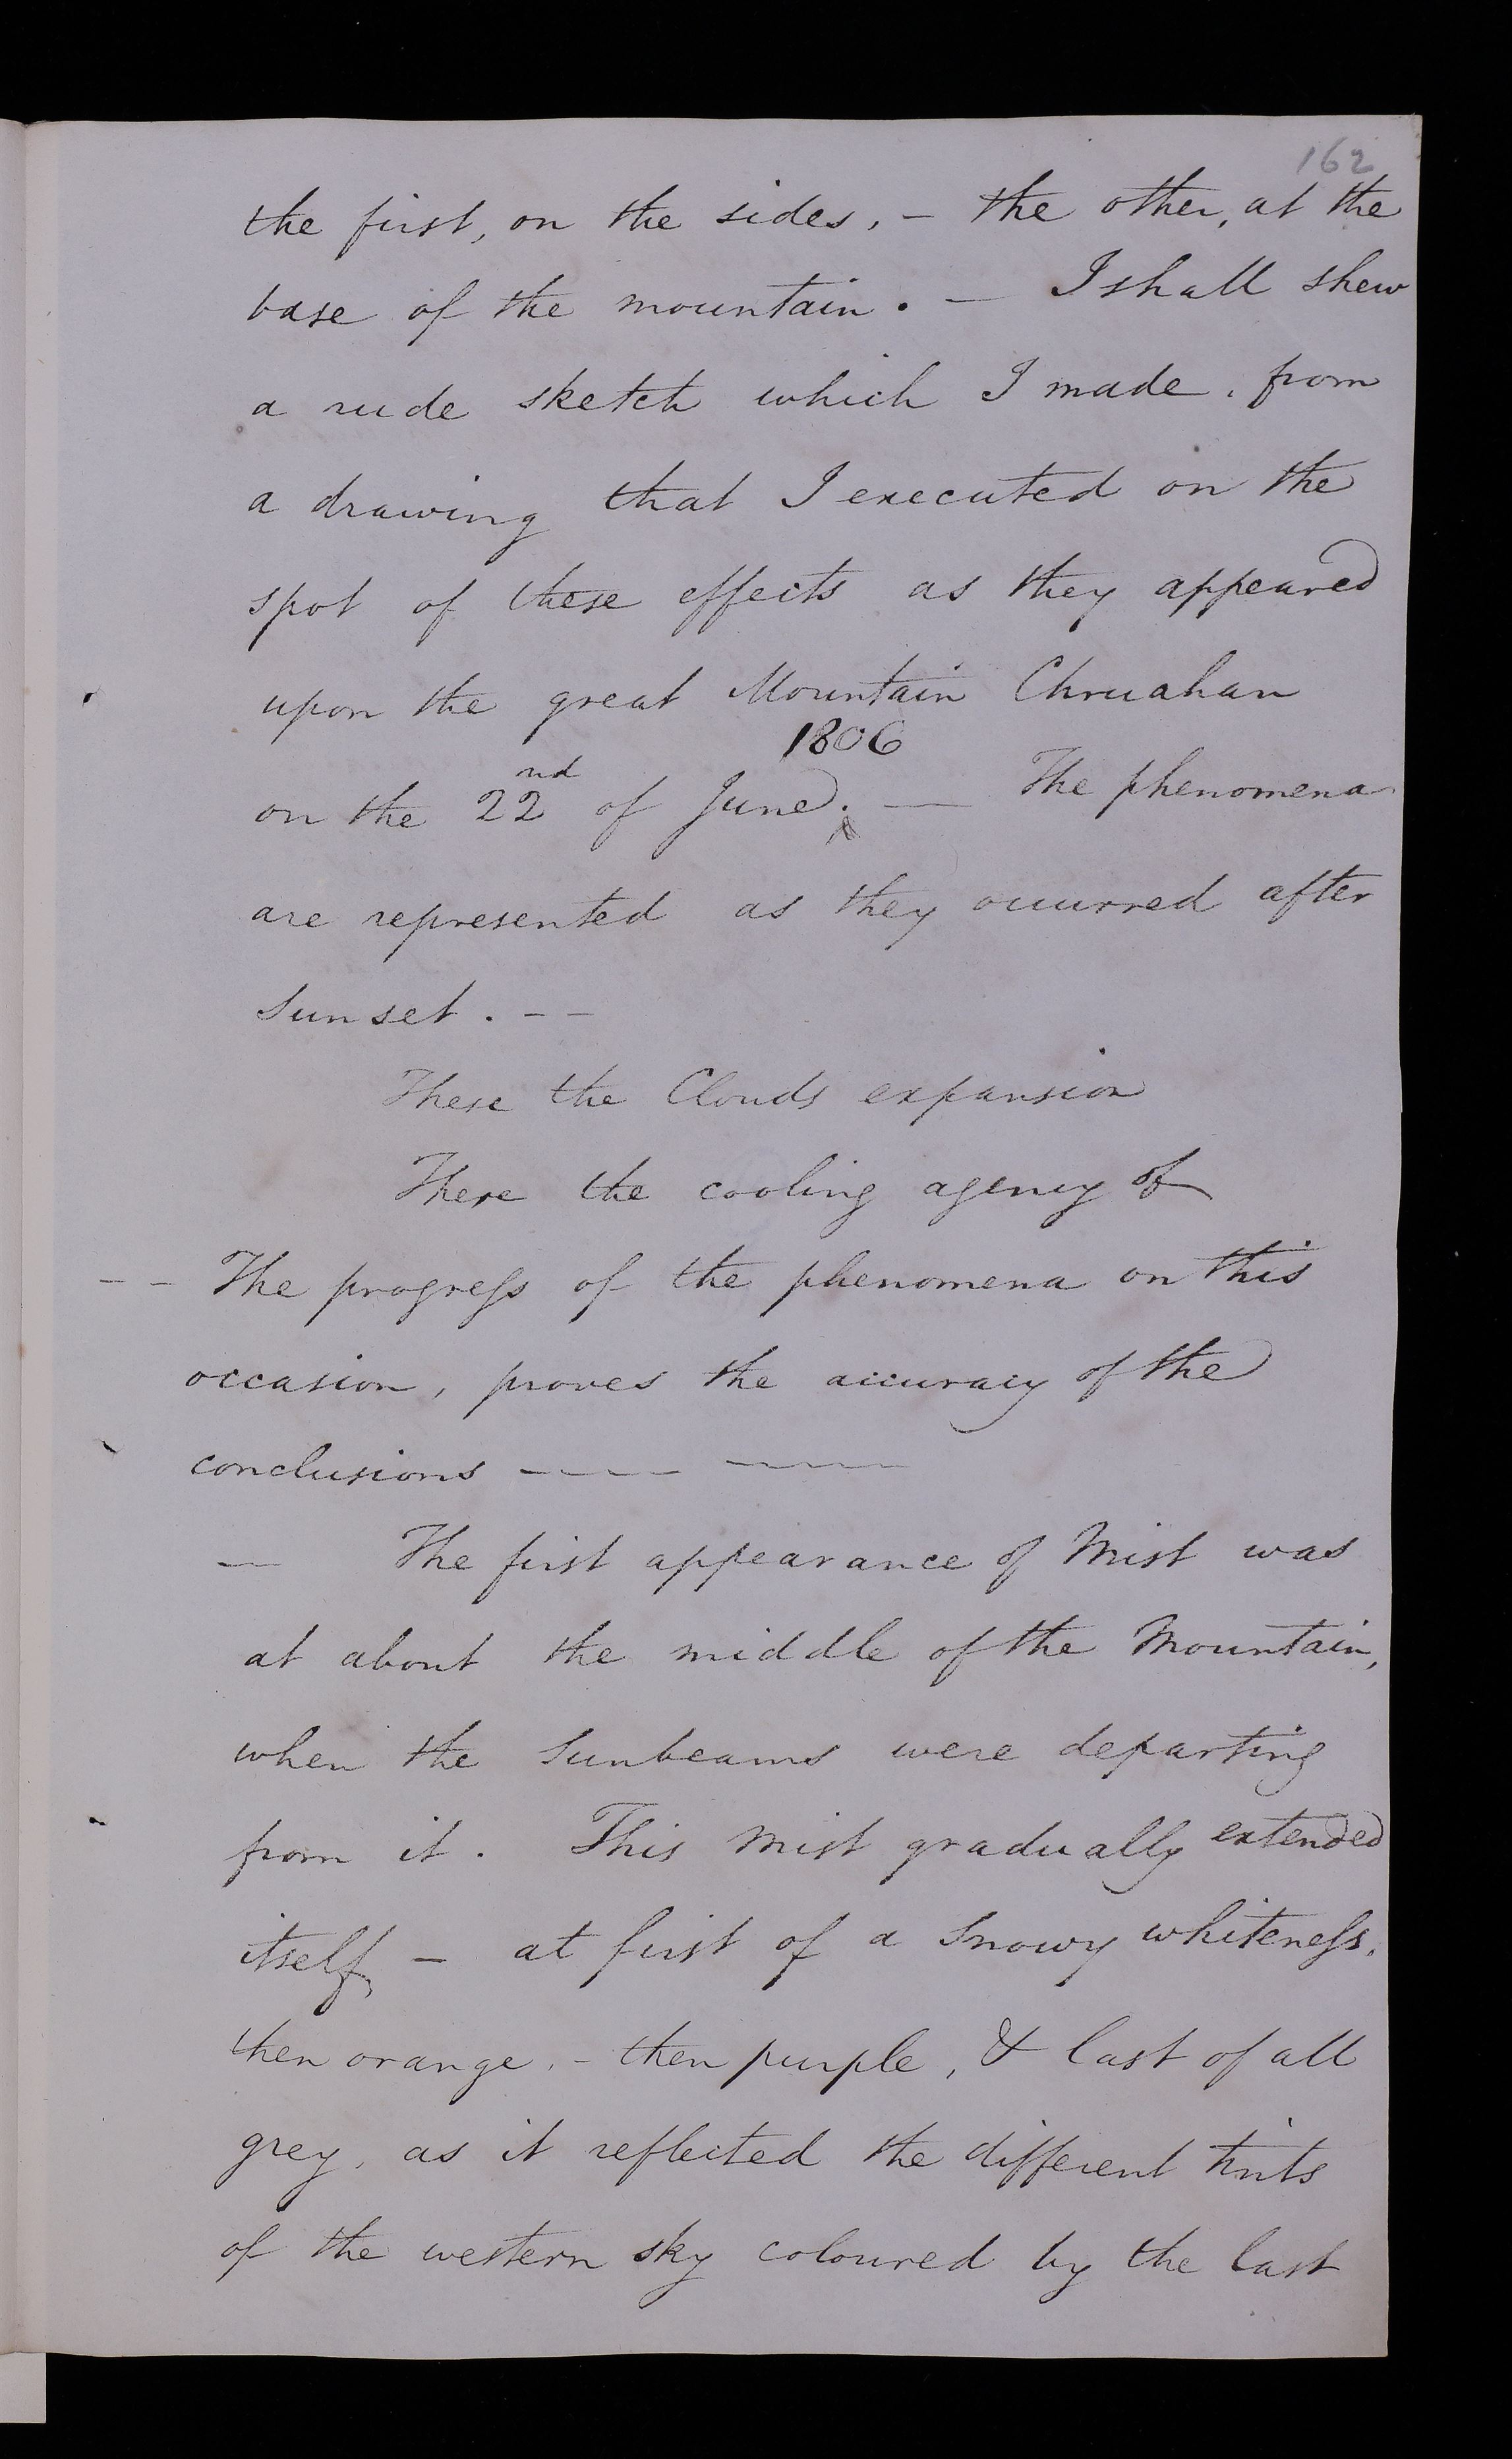 162
the first, on the sides, - the other, at the
base of the mountain. - I shall shew
a rude sketch which I made, from
a drawing that I executed on the
spot of these effects as they appeared
upon the great Mountain Chruahan
1806
on the 22nd of June. — The phenomena
are represented as they occurred after
Sunset. - -
These the Clouds expansion
There the cooling agency of
- - The progress of the phenomena on this
occasion, proves the accuracy of the
conclusions - - - - - - - -
— The first appearance of Mist was
at about the middle of the Mountain,
when the Sunbeams were departing
from it. This Mist gradually extended
itself, - at first of a Snowy whiteness,
then orange, - then purple, & last of all
grey, as it reflected the different tints
of the western sky coloured by the last